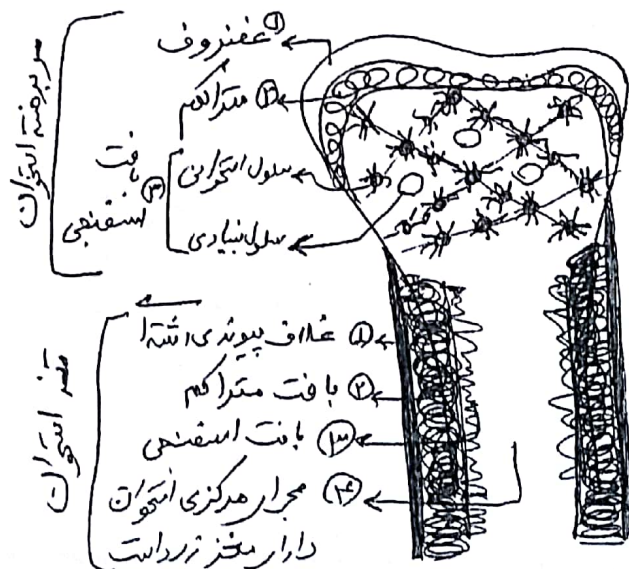 سر برجسته استخوان
① غضروف
② متراکم
بافت اسفنجی ③
سلول استخوانی
سلول بنیادی
تنه استخوان
① غلاف پیوندی
② بافت متراکم
③ بافت اسفنجی
④ مجرای مرکزی استخوان
دارای مغز زرد است